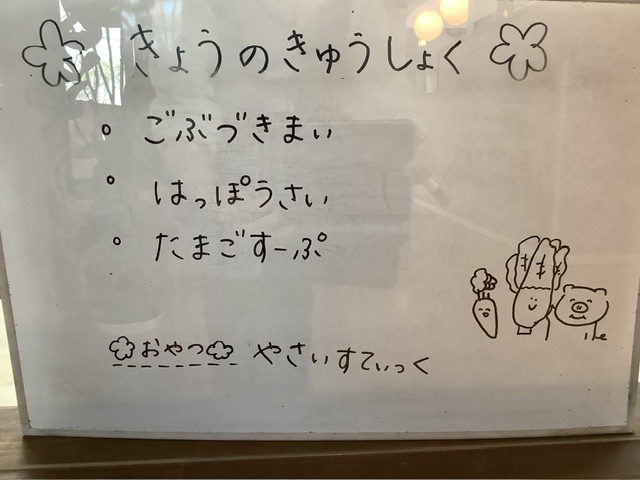 きょうのきゅうしょく
ごぶづきまい
はっぽうさい
たまごすーぷ
おやつ やさいすてぃっく